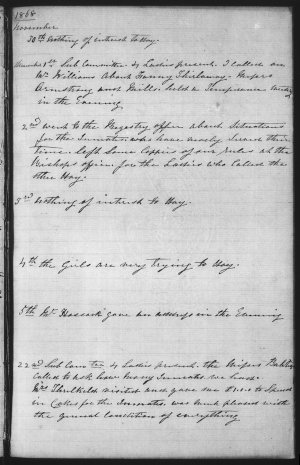 1868
November
30th Nothing of interest to Day.
December 1st Sub Committee 4 Ladies present. I called on
Mr Williams about Fanny Misses
Armstrong and Mills held a Temperance
in the Evening
2nd went to the Registry office about Situations
for the Inmates who have nearly served their
time. Left Some Coppies of our rules at the
Bishops office for the Ladies who called the
other Day.
3rd Nothing of interest to Day.
4th the Girls are very trying to Day.
5th Mr gave an address in the Evening
22nd Sub Com tee 4 Ladies present. the Misses
called to ask how many Inmates we had.
Mrs Threlkeld visited and gave me to Spend
in Cakes for the Inmates. was much pleased with
the general condition of everything